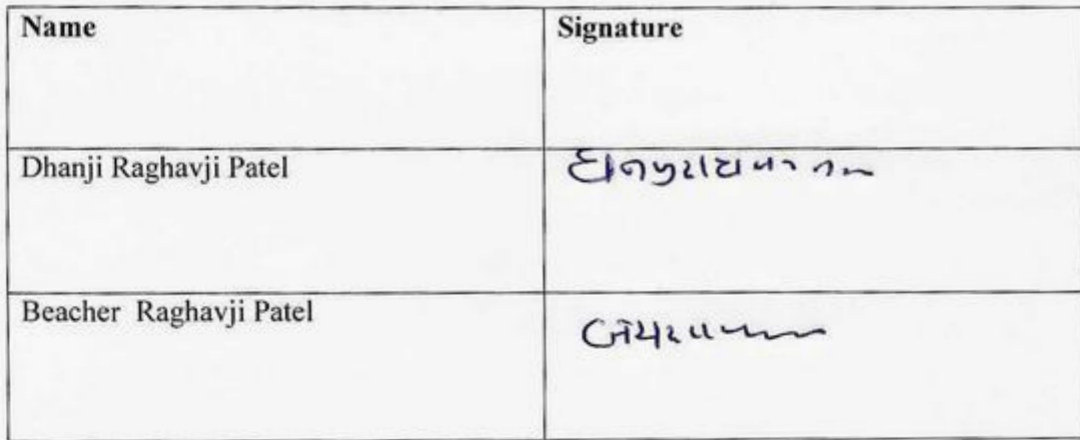 Name Signature
Dhanji Raghavji Patel
Beacher Raghavji Patel